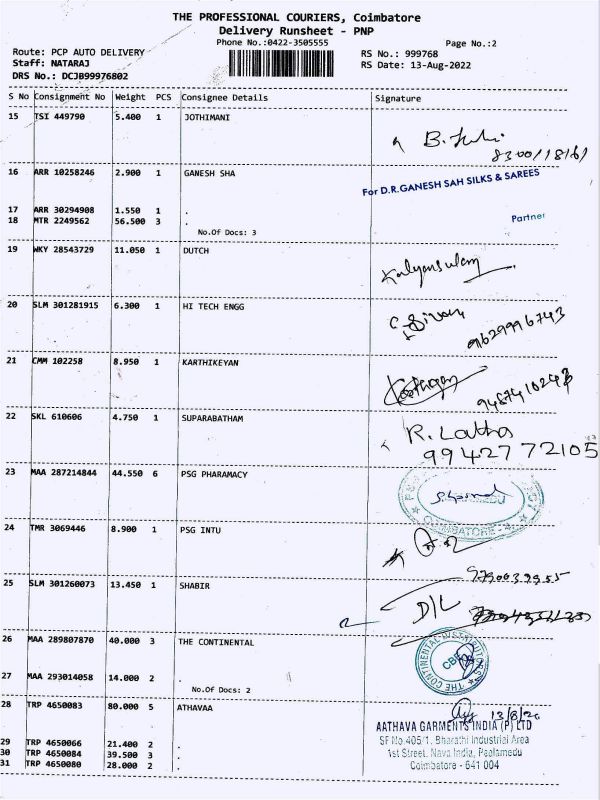 THE PROFESSIONAL COURIERS, Coimbatore
Delivery Runsheet - PNP
Phone No.:0422-3505555
Page No.:2
Route: PCP AUTO DELIVERY
Staff: NATARAJ
DRS No.: DCJB99976802
RS No.: 999768
RS Date: 13-Aug-2022
S No Consignment No Weight PCS Consignee Details Signature
15 TSI 449790 5.400 1 JOTHIMANI
16 ARR 10258246 2.900 1 GANESH SHA
For D.R.GANESH SAH SILKS & SAREES
17 ARR 30294908 1.550 1 .
18 MTR 2249562 56.500 3 .
Partner
No.Of Docs: 3
19 WKY 28543729 11.050 1 DUTCH
Kalyansulam
20 SLM 301281915 6.300 1 HI TECH ENGG
9629996743
21 CMM 102258 8.950 1 KARTHIKEYAN
22 SKL 610606 4.750 1 SUPARABATHAM
R. Latha
9942772105
23 MAA 287214844 44.550 6 PSG PHARAMACY
COIMBATORE
24 TMR 3069446 8.900 1 PSG INTU
25 SLM 301260073 13.450 1 SHABIR
D/L
26 MAA 289807870 40.000 3 THE CONTINENTAL
THE CONTINENTAL DISTRIBUTORS
CBE
27 MAA 293014058 14.000 2 .
No.Of Docs: 2
28 TRP 4650083 80.000 5 ATHAVAA
13/8/20
AATHAVA GARMENTS INDIA (P) LTD
SF No.405/1, Bharathi Industrial Area
1st Street, Nava India, Peelamedu
Coimbatore - 641 004
29 TRP 4650066 21.400 2 .
30 TRP 4650084 39.500 3 .
31 TRP 4650080 28.000 2 .